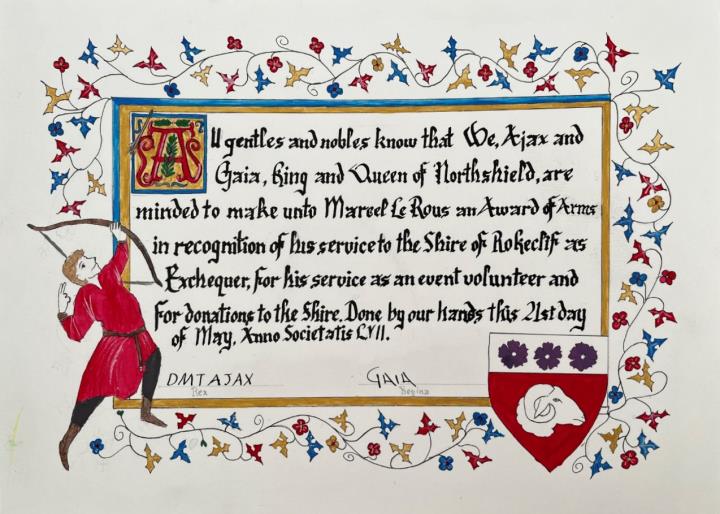 Au gentles and nobles know that We, Ajax and
Gaia, King and Queen of Northshield, are
minded to make unto Marcel Le Rous an Award of Arms
in recognition of his service to the Shire of Rokeclif as
Exchequer, for his service as an event volunteer and
for donations to the Shire. Done by our hands this 21st day
of May, Anno Societatis LVII.
DMT AJAX GAIA
Rex Regina